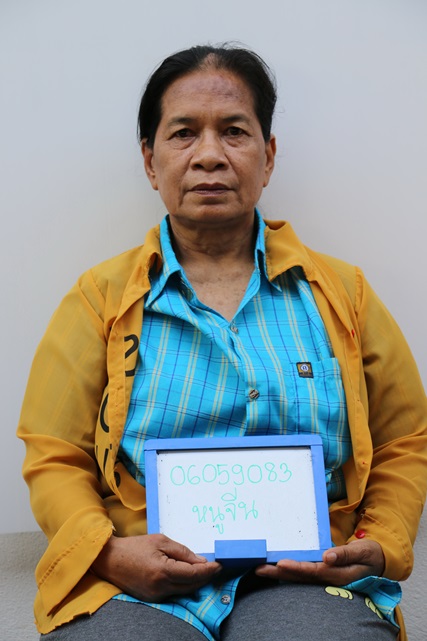 06059083
หนูจีน